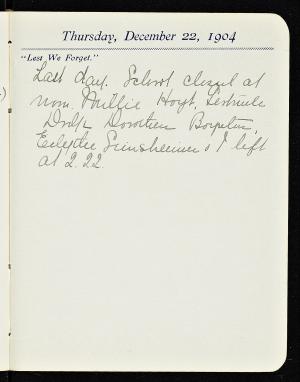 Thursday, December 22, 1904
"Lest We Forget."
Last day. School closed at
noon. Millie Hoyt, Gertrude
Dorothea
& I left
at 2.22.